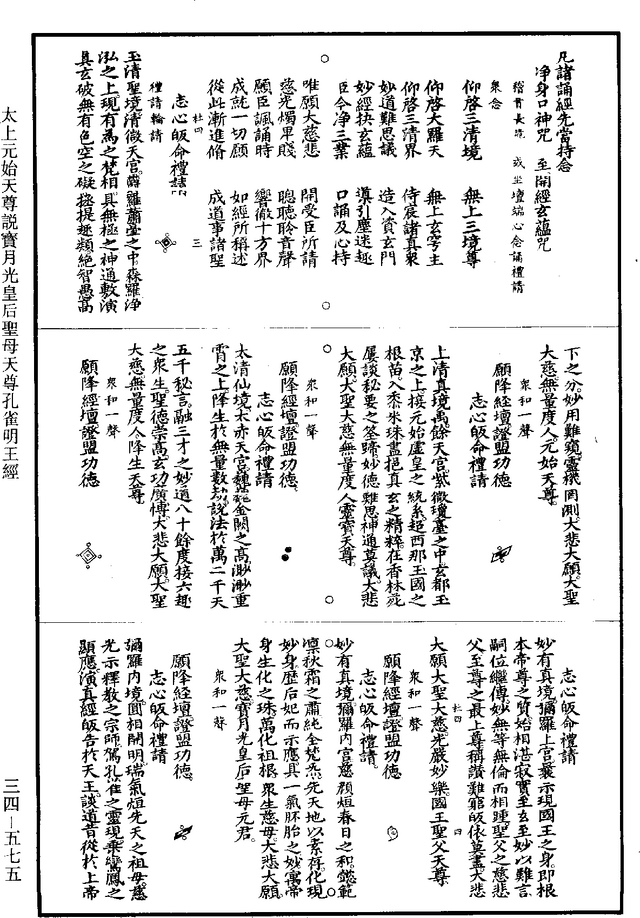 太上元始天尊說寶月光皇后聖母天尊孔雀明王經
三四—五七五
凡諸誦經先當持念
淨身口神咒　至開經玄蘊咒
稽首長跪　或坐壇端心念誦禮請
衆念
仰啓三清境　無上三境尊
仰啓大羅天　無上玄穹主
仰啓三清界　侍宸諸真衆
妙道難思議　造入資玄門
妙經抉玄蘊　導引塵迷趣
臣今淨三業　口誦及心持
唯願大慈悲　開受臣所請
慈光燭卑賤　聰聽聆音聲
願臣諷誦時　響徹十方界
成就一切願　如經所稱述
從此漸進脩　成道事諸聖
杜四　三
志心皈命禮請
禮請輪請
玉清聖境清微天宮欝羅蕭臺之中森羅淨
泓之上現有爲之梵相具無極之神通敷演
真玄破無有色空之礙極提趣類絕智愚高
下之分妙用難窺靈機罔測大悲大願大聖
大慈無量度人元始天尊
衆和一聲
願降經壇證盟功德
志心皈命禮請
上清真境禹餘天宮紫微瓊臺之中玄都玉
京之上接元始虛皇之統系超西那玉國之
根苗入黍米珠晝挹真玄之精粹在香林苑
屢談秘要之筌蹄妙德難思神通莫議大悲
大願大聖大慈無量度人靈寶天尊
衆和一聲
願降經壇證盟功德
志心皈命禮請
太清仙境太赤天宮巍巍金闕之高渺渺重
霄之上降生於無量數劫說法於萬二千天
五千秘言融三才之妙道八十餘度接六趣
之衆生聖德崇高玄功廣博大悲大願大聖
大慈無量度人降生天尊
衆和一聲
願降經壇證盟功德
志心皈命禮請
妙有真境彌羅上宮曩示現國王之身即根
本帝尊之質始相湛寂實至玄至妙以難言
嗣位繼傳妙無等無倫而相踵聖父之慈悲
父至尊之最上尊稱讚難窮皈依莫盡大悲
杜四　四
大願大聖大慈光嚴妙樂國王聖父天尊
衆和一聲
願降經壇證盟功德
志心皈命禮請
妙有真境彌羅內宮慈顏烜春日之和懿範
凜秋霜之肅純全梵炁先天地以素存化現
妙身歷后妃而示應具一氣胚胎之妙寓帝
身生化之殊萬化祖根衆生慈母大悲大願
大聖大慈寶月光皇后聖母元君
衆和一聲
願降經壇證盟功德
志心皈命禮請
彌羅內境圓相開明瑞氣烜先天之祖母慈
光示釋教之宗師駕孔雀之靈現乘鸞鳳之
顯應演真經皈告於天王談道昔從於上帝